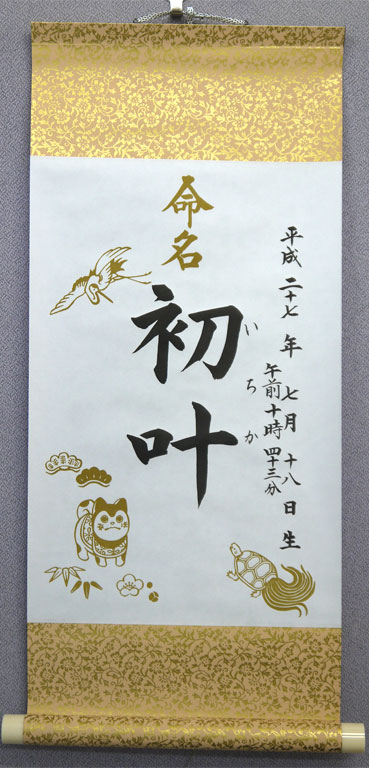 平成二十七年七月十八日生
午前十時四十三分
命名
初叶
いちか